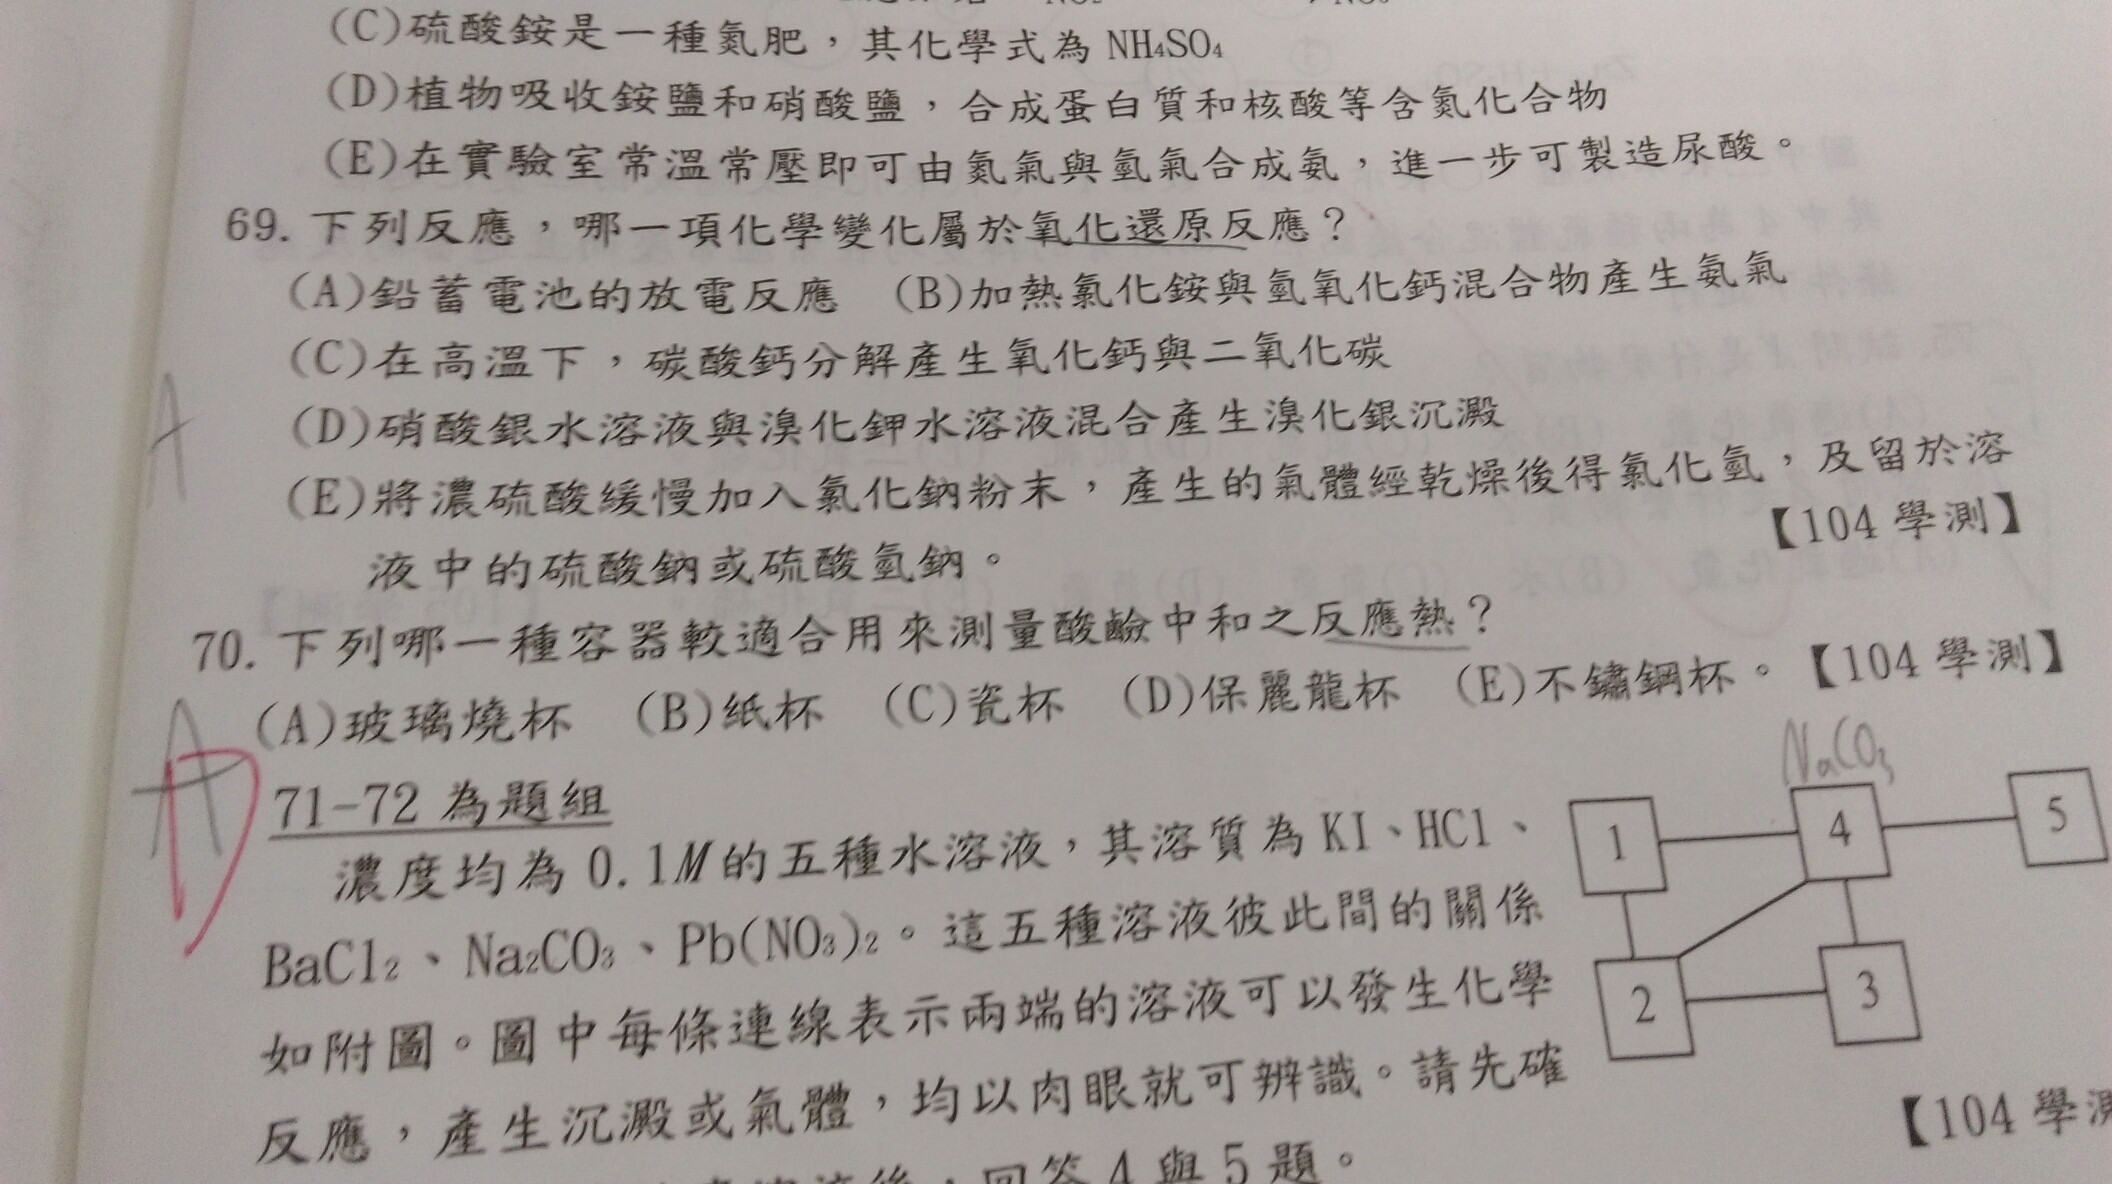 (C)硫酸銨是一種氮肥，其化學式為 NH₄SO₄
(D)植物吸收銨鹽和硝酸鹽，合成蛋白質和核酸等含氮化合物
(E)在實驗室常溫常壓即可由氮氣與氫氣合成氨，進一步可製造尿酸。
69. 下列反應，哪一項化學變化屬於氧化還原反應？
(A)鉛蓄電池的放電反應 (B)加熱氯化銨與氫氧化鈣混合物產生氨氣
(C)在高溫下，碳酸鈣分解產生氧化鈣與二氧化碳
A
(D)硝酸銀水溶液與溴化鉀水溶液混合產生溴化銀沉澱
(E)將濃硫酸緩慢加入氯化鈉粉末，產生的氣體經乾燥後得氯化氫，及留於溶
液中的硫酸鈉或硫酸氫鈉。 【104 學測】
70. 下列哪一種容器較適合用來測量酸鹼中和之反應熱？
(A)玻璃燒杯 (B)紙杯 (C)瓷杯 (D)保麗龍杯 (E)不鏽鋼杯。【104 學測】
A
D
71-72 為題組
濃度均為 0.1M 的五種水溶液，其溶質為 KI、HCl、
BaCl₂、Na₂CO₃、Pb(NO₃)₂。這五種溶液彼此間的關係
如附圖。圖中每條連線表示兩端的溶液可以發生化學
反應，產生沉澱或氣體，均以肉眼就可辨識。請先確
回答 4 與 5 題。
NaCO₃
1
4
5
2
3
【104 學測